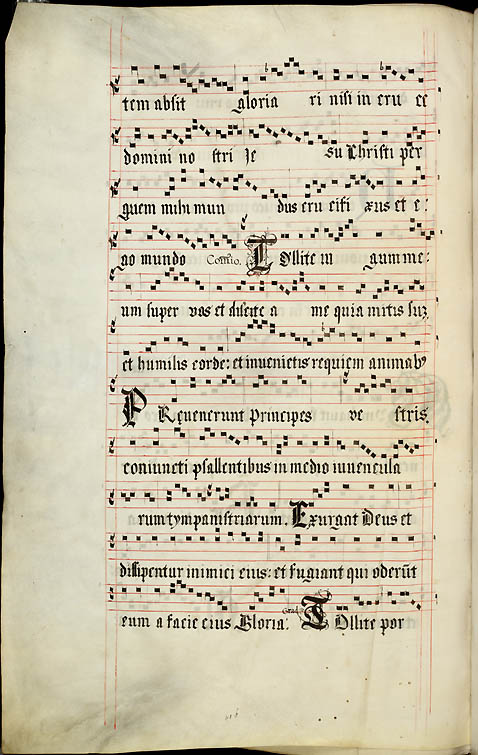 tem absit gloria ri nisi in cru ce
domini no stri Je su Christi per
quem mihi mun dus cru cifi xus et e:
go mundo Com̄io. Tollite iugum me:
um super vos et discite a me quia mitis suz
et humilis corde: et invenietis requiem animab9
PRevenerunt principes ve stris.
coniuncti psallentibus in medio iuvencula
rum tympanistriarum. Exurgat Deus et
dissipentur inimici eius: et fugiant qui oderūt
eum a facie eius. Gloria. Grad. Tollite por